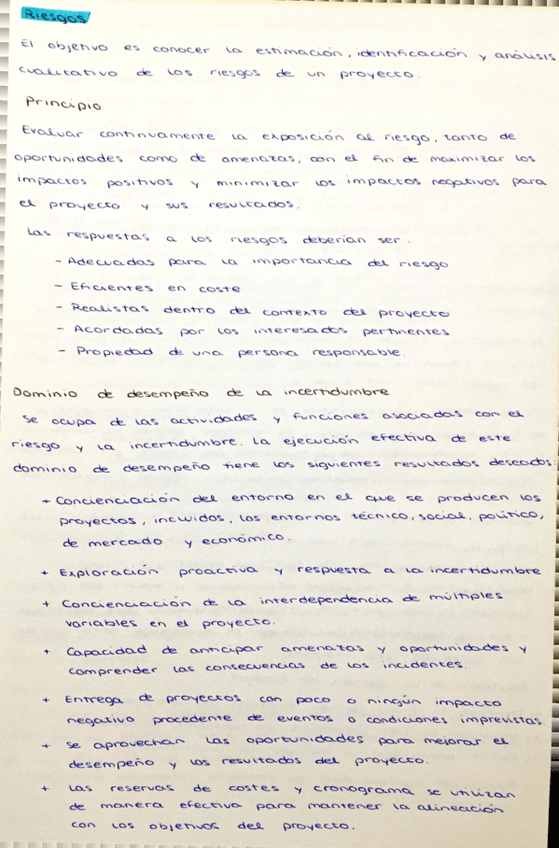 Riesgos
El objetivo es conocer la estimación, identificación y análisis
cualitativo de los riesgos de un proyecto.
Principio
Evaluar continuamente la exposición al riesgo, tanto de
oportunidades como de amenazas, con el fin de maximizar los
impactos positivos y minimizar los impactos negativos para
el proyecto y sus resultados.
Las respuestas a los riesgos deberían ser:
- Adecuadas para la importancia del riesgo
- Eficientes en coste
- Realistas dentro del contexto del proyecto
- Acordadas por los interesados pertinentes
- Propiedad de una persona responsable.
Dominio de desempeño de la incertidumbre
Se ocupa de las actividades y funciones asociadas con el
riesgo y la incertidumbre. La ejecución efectiva de este
dominio de desempeño tiene los siguientes resultados deseados:
+ Concienciación del entorno en el que se producen los
proyectos, incluidos, los entornos técnico, social, político,
de mercado y económico.
+ Exploración proactiva y respuesta a la incertidumbre
+ Concienciación de la interdependencia de múltiples
variables en el proyecto.
+ Capacidad de anticipar amenazas y oportunidades y
comprender las consecuencias de los incidentes.
+ Entrega de proyectos con poco o ningún impacto
negativo procedente de eventos o condiciones imprevistas
+ Se aprovechan las oportunidades para mejorar el
desempeño y los resultados del proyecto.
+ Las reservas de costes y cronograma se utilizan
de manera efectiva para mantener la alineación
con los objetivos del proyecto.